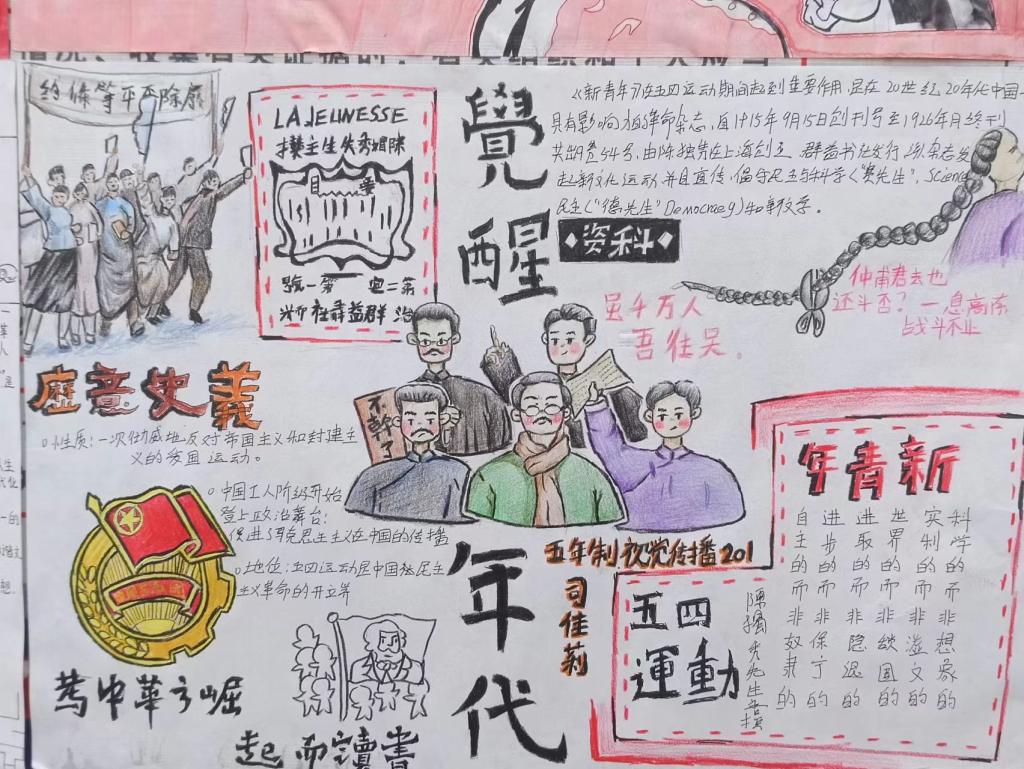 約條等平不除廢
LA JEUNESSE
覺醒
《新青年》在五四运动期间起到重要作用,是在20世纪20年代中国一
具有影响力的革命杂志,自1915年9月15日创刊号至1926年月终刊
共出9卷54号,由陈独秀在上海创立、群益书社发行,该杂志发
起新文化运动并且宣传,倡导民主与科学("赛先生", Science
民主("德先生" Democracy)和新文学。
资料
虽千万人
吾往吴。
仲甫君去也
还斗否?一息尚存
战斗不止
號一第 卷二第
社書益群
不幹了
歷意史義
性质:一次彻底地反对帝国主义和封建主
义的爱国运动。
中国工人阶级开始
登上政治舞台;
促进了马克思主义在中国的传播
地位:五四运动是中国新民主
主义革命的开端
為中華之崛
起而讀書
年代
五年制视觉传播201
司佳莉
五四
運動
年青新
自主的而非奴隶的
进步的而非保守的
进取的而非隐退的
世界的而非锁国的
实利的而非虚文的
科学的而非想象的